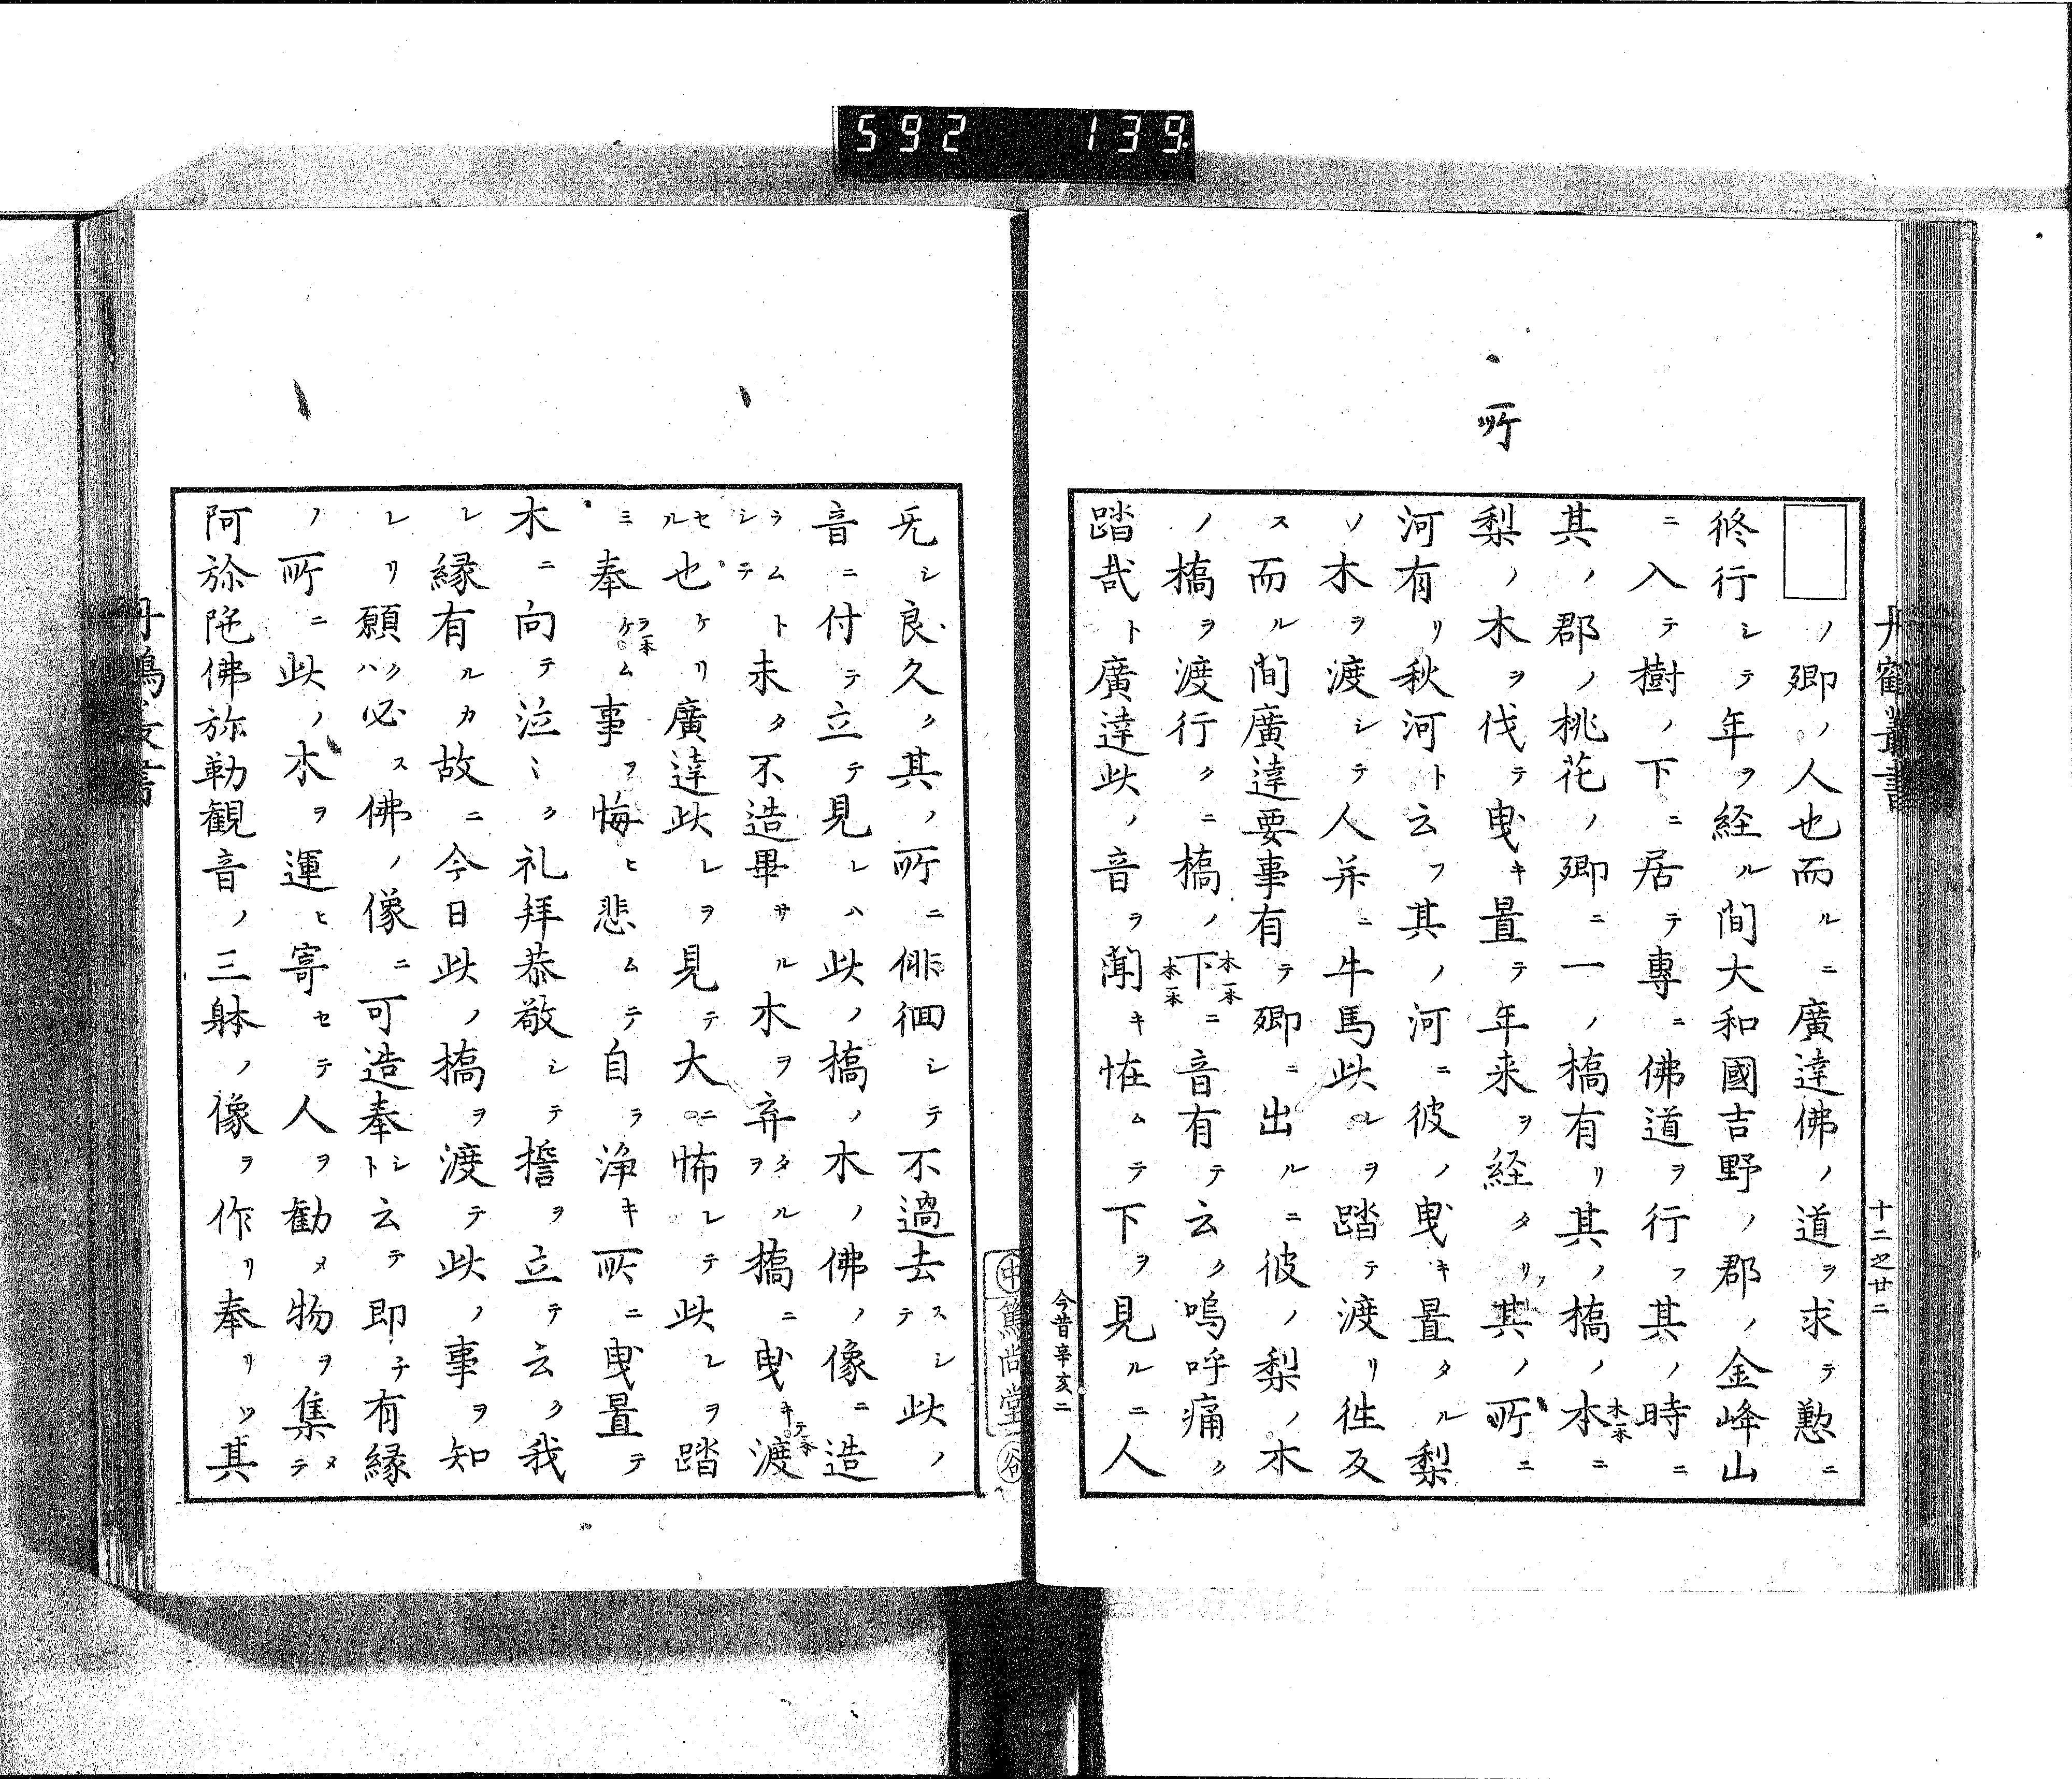 592 139
丹鶴叢書
十二之廿二
所
□ノ郷ノ人也而ルニ廣達佛ノ道ヲ求テ懃ニ
修行シテ年ヲ経ル間大和國吉野ノ郡ノ金峰山
ニ入テ樹ノ下ニ居テ專ニ佛道ヲ行フ其ノ時ニ
其ノ郡ノ桃花ノ郷ニ一ノ橋有リ其ノ橋ノ本ニ
木一本
梨ノ木ヲ伐テ曳キ置テ年来ヲ経タリ其ノ所ニ
河有リ秋河ト云フ其ノ河ニ彼ノ曳キ置タル梨
ノ木ヲ渡シテ人并ニ牛馬此レヲ踏テ渡リ往反
ス而ル間廣達要事有テ郷ニ出ルニ彼ノ梨ノ木
ノ橋ヲ渡行クニ橋ノ下ニ音有テ云ク嗚呼痛ク
木一本
本一本
踏哉ト廣達此ノ音ヲ聞キ恠ムテ下ヲ見ルニ人
今昔辛亥二
中篤尚堂谷
旡シ良久ク其ノ所ニ俳徊シテ不過去スシテ此ノ
音ニ付テ立テ見レハ此ノ橋ノ木ノ佛ノ像ニ造
ラムトシテ未タ不造畢サル木ヲ弃タルヲ橋ニ曳キ渡
テ一本
セル也ケリ廣達此レヲ見テ大ニ怖レテ此レヲ踏
ミ奉ケム事ヲ悔ヒ悲ムテ自ラ浄キ所ニ曳置テ
ラ一本
木ニ向テ泣〻ク礼拜恭敬シテ誓ヲ立テ云ク我
レ縁有ルカ故ニ今日此ノ橋ヲ渡テ此ノ事ヲ知
レリ願クハ必ス佛ノ像ニ可造奉シト云テ即チ有縁
ノ所ニ此ノ木ヲ運ヒ寄セテ人ヲ勧メ物ヲ集メテ
阿弥陀佛弥勒観音ノ三躰ノ像ヲ作リ奉リツ其